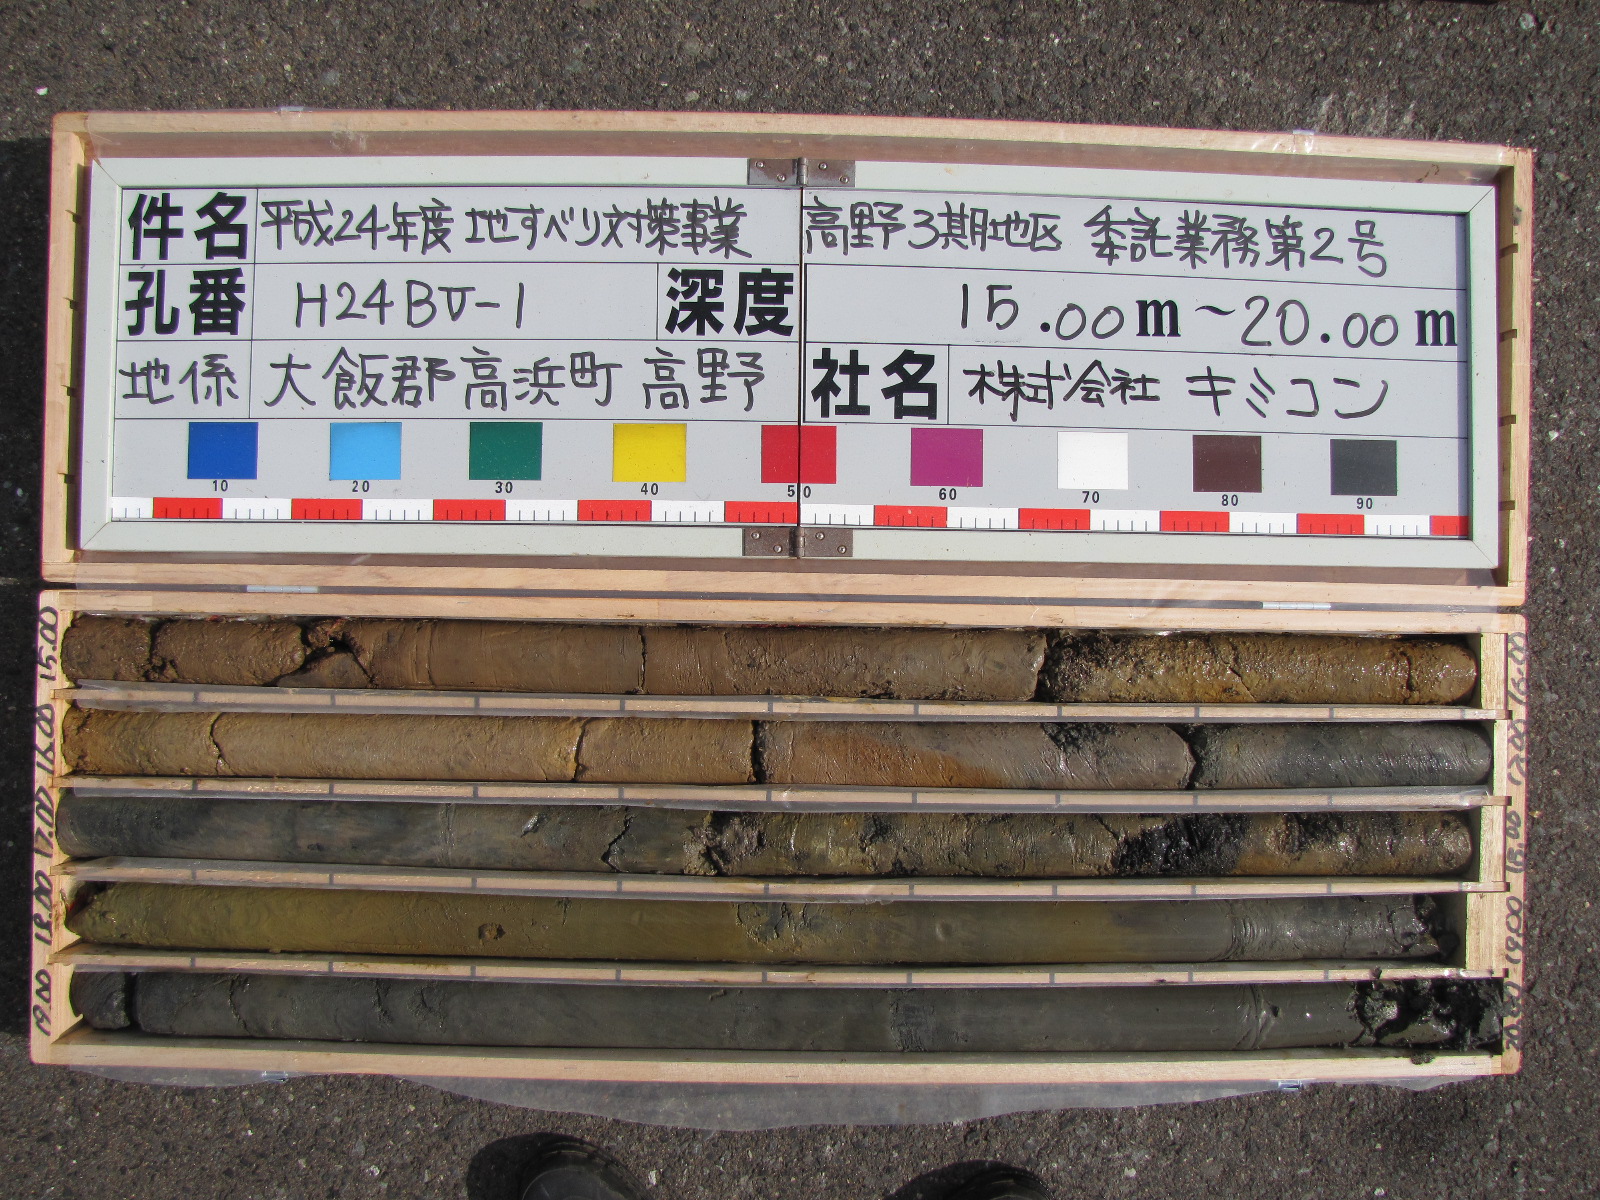 件名 平成24年度 地すべり対策事業 高野3期地区 委託業務第2号
孔番 H24BV-1 深度 15.00m~20.00m
地係 大飯郡高浜町 高野 社名 株式会社 キミコン
10 20 30 40 50 60 70 80 90
15.00 16.00
16.00 17.00
17.00 18.00
18.00 19.00
19.00 20.00